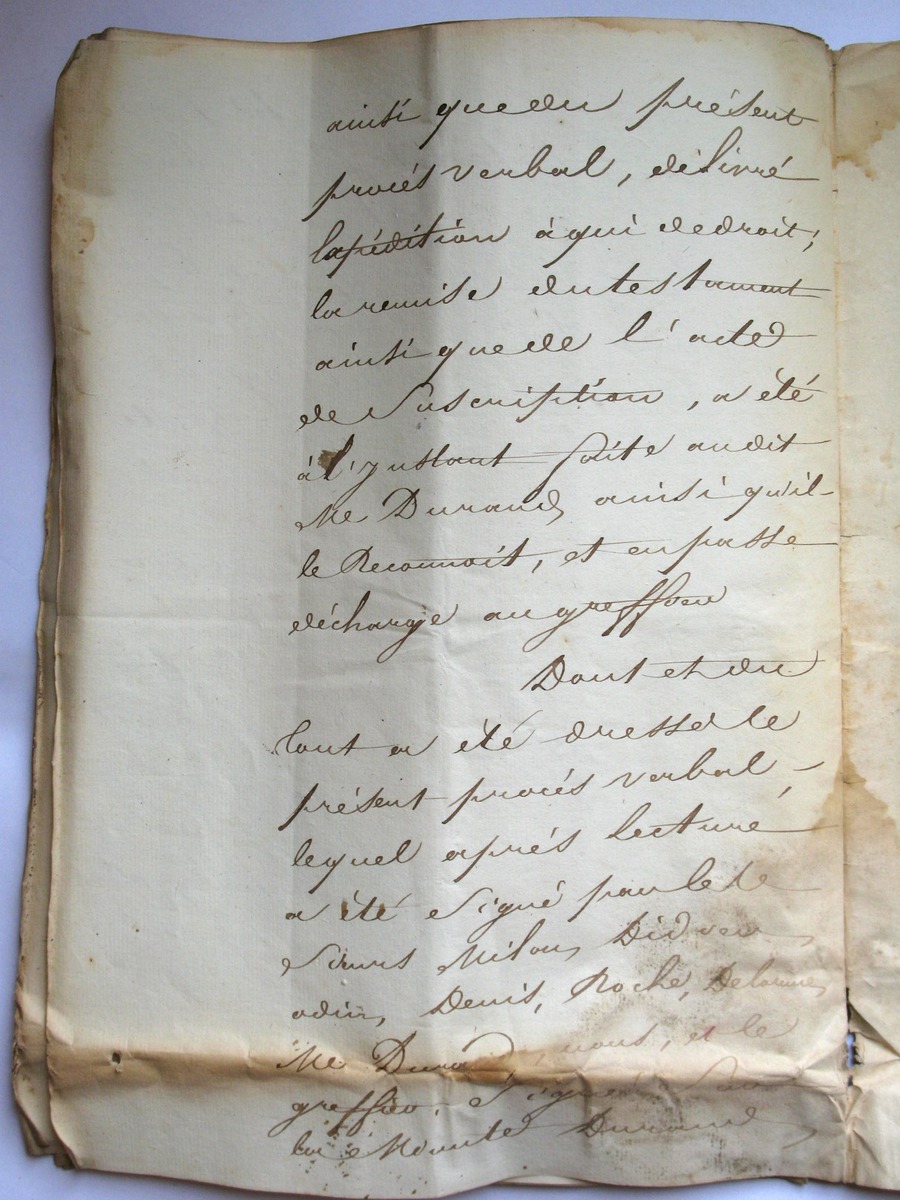 ainsi que du présent
procés verbal, délivré
l'expédition à qui de droit;
la remise du testament
ainsi que de l'acte
de Suscription, a été
à l'ynstant faite audit
Me Durand, ainsi qu'il
le Reconnoit, et en passe
décharge au greffier
Dont et du
tout a été dressé le
présent procés verbal,
lequel aprés lecture
a été Signé par le
Sieurs Milon,
odin, Denis, Roche, Delorme,
Me Durand, nous, et le
greffier. Signé
minute Durand,